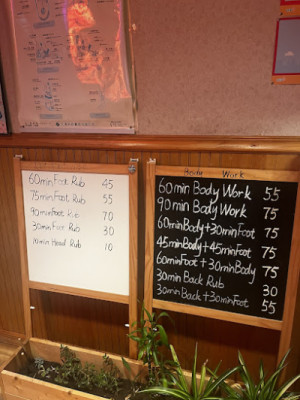 60min Foot Rub 45
75min Foot Rub 55
90min Foot Rub 70
30min Foot Rub 30
10min Head Rub 10
Body Work
60min Body Work 55
90min Body Work 75
60minBody+30minFoot 75
45minBody+45minFoot 75
60minFoot+30minBody 75
30min Back Rub 30
30min Back+30minFoot 55